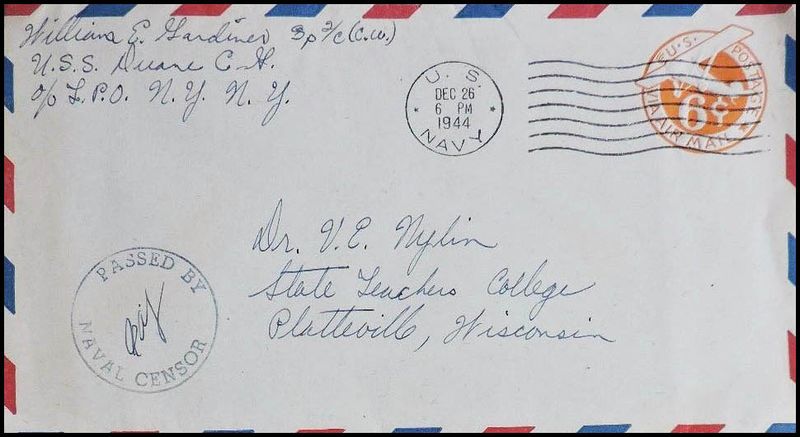 William E. Gardiner Sp 2/c (C.W.)
U.S.S. Duane C.G.
c/o F.P.O. N.Y. N.Y.
U. S.
DEC 26
6 PM
1944
NAVY
U.S. POSTAGE
6¢
VIA AIR MAIL
Dr. V. E. Nylin
State Teachers College
Platteville, Wisconsin
PASSED BY
NAVAL CENSOR